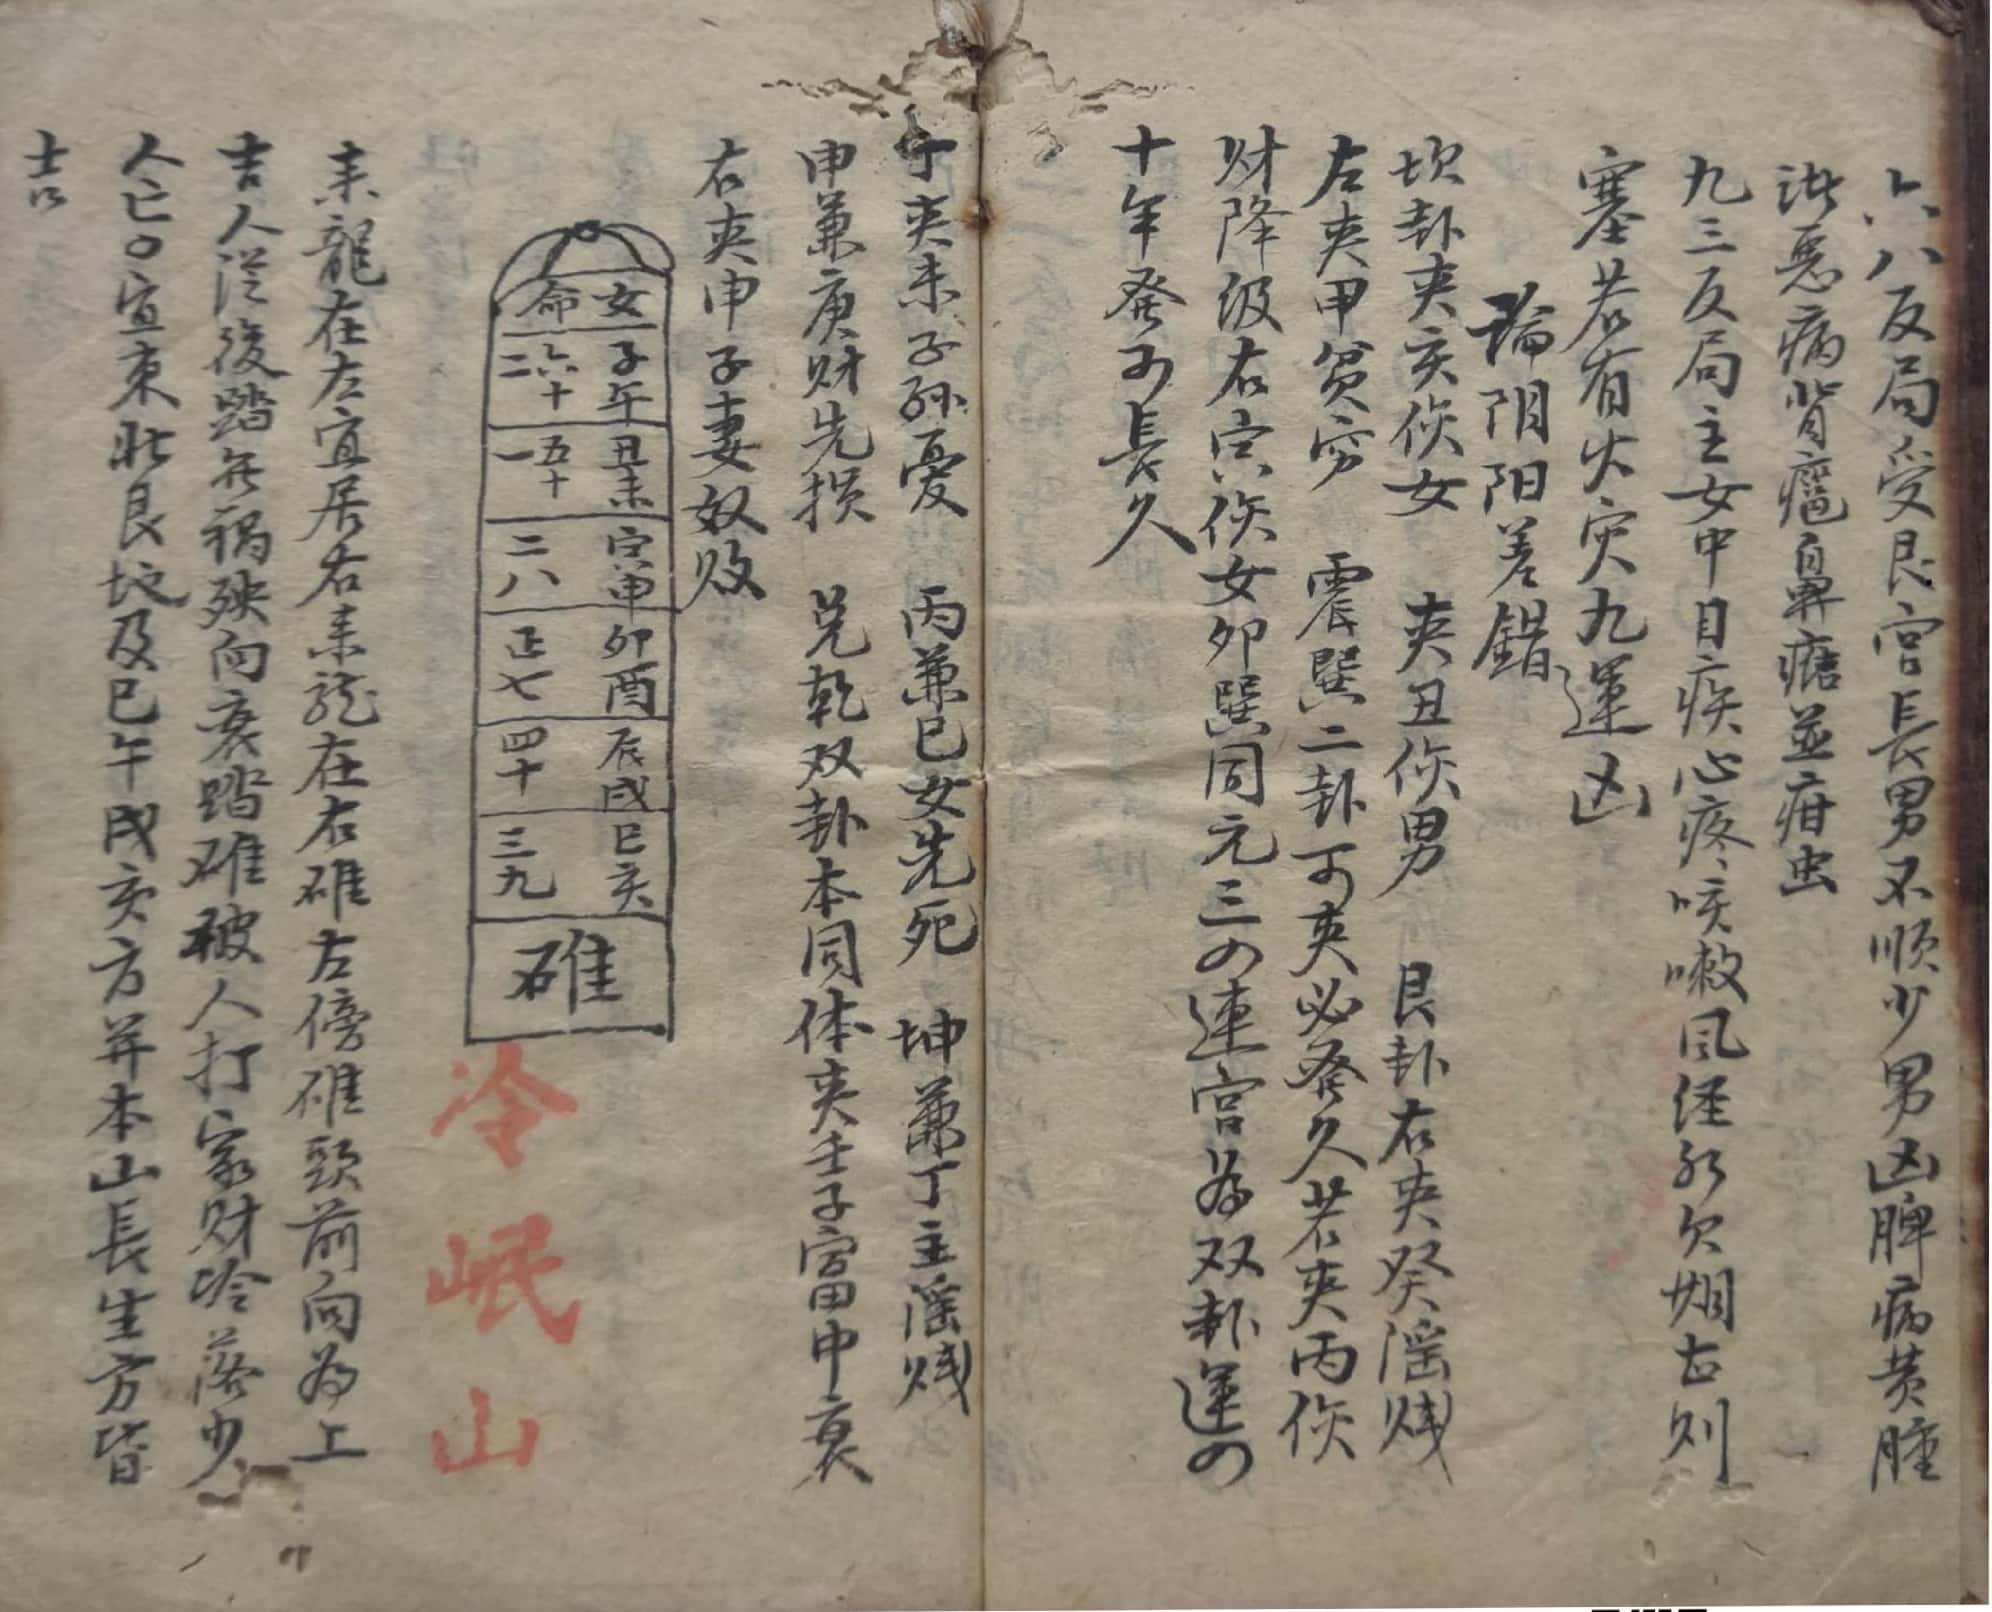 六八反局受艮宫長男不顺少男凶脾病黄腫
诸惡病背瘟鼻瘡並疳虫
九三反局主女中目疾心疼咳嗽风经水欠烟古则
塞若有火灾九運凶
論阴阳差錯
坎卦夹亥傷女 夹丑傷男 艮卦右夹癸淫贱
左夹甲贫穷 震巽二卦可夹必發久若夹丙傷
财降级右宫傷女卯巽同元三の連宫為双卦運の
十年發可長久
丁夹未子孙憂 丙兼巳女先死 坤兼丁主淫贱
申兼庚财先损 兑乾双卦本同体夹壬子富中衰
右夹申子妻奴败
女命
子午 六十二
丑未 五十一
寅申 二八
卯酉 正七
辰戌 四十
巳亥 三九
碓
冷岷山
来龍在左宜居右来龙在右碓左傍碓頭前向為上
吉人從後踏無禍殃向裏踏碓被人打家财冷落少
人亡宜東北艮坟及巳午戌亥方并本山長生方皆
吉